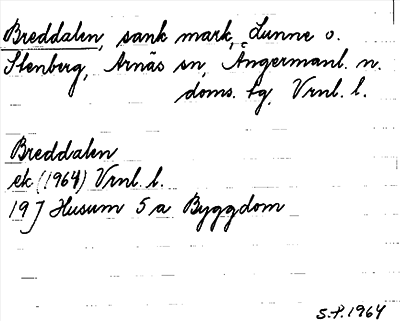 Breddalen, sank mark, Lunne o.
Stenberg, Arnäs sn, Ångermanl. n.
doms. tg, Vrnl. l.
Breddalen
ek (1964) Vrnl. l.
19 J Husum 5 a Byggdom
S.P. 1964